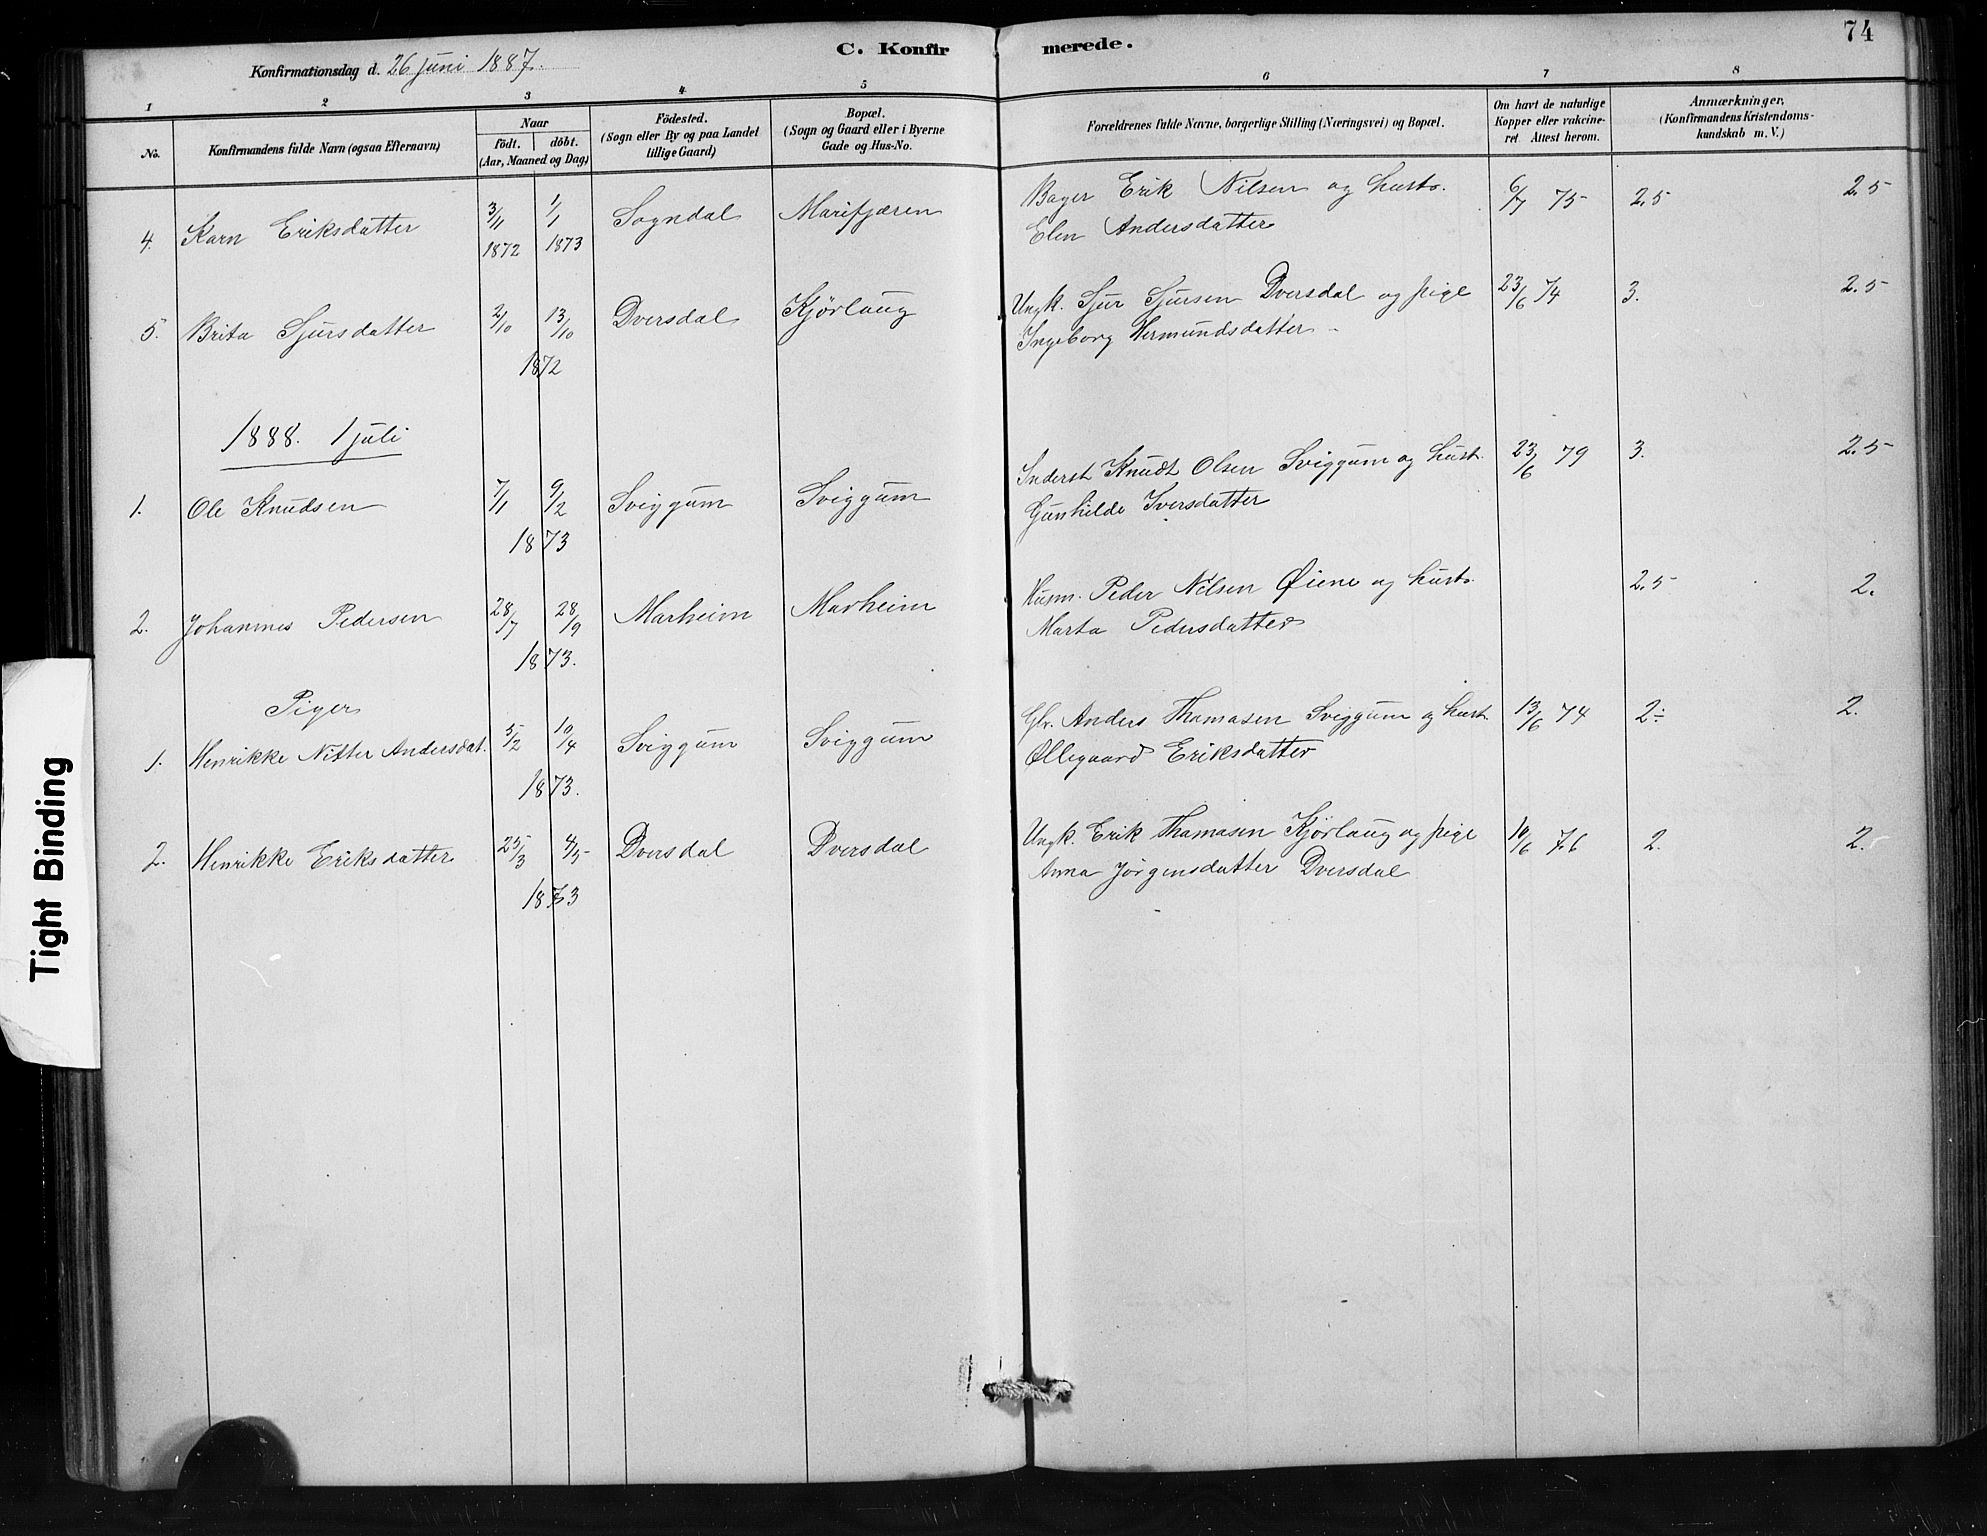 74
C. Konfirmerede.
Konfirmationsdag d. 26 juni 1887.
1 2 3 4 5 6 7 8
No.
Konfirmandens fulde Navn (ogsaa Efternavn)
Naar
födt. döbt.
(Aar, Maaned og Dag)
Födested.
(Sogn eller By og paa Landet
tillige Gaard)
Bopæl.
(Sogn og Gaard eller i Byerne
Gade og Hus-No.
Forældrenes fulde Navne, borgerlige Stilling (Næringsvei) og Bopæl.
Om havt de naturlige
Kopper eller vakcine-
ret Attest herom.
Anmærkninger.
(Konfirmandens Kristendoms-
kundskab m. V.)
4. Karn Eriksdatter 3/11 1872 1/1 1873 Sogndal Marifjæren
Erik Nilsen og hustr. 6/7 75 2.5 2.5
Elen Andersdatter
5. Brita Sjursdatter 2/10 13/10 Dversdal Kjørlaug
1872
Ungk. Sjur Sjursen Dversdal og pige 23/6 74 3. 2.5
Ingeborg Hermundsdatter
1888. 1 juli
1. Ole Knudsen 7/1 9/2 Sviggum Sviggum
1873
Inderst Knudt Olsen Sviggum og hust. 23/6 79 3. 2.5
Gunhilde Iversdatter
2. Johannes Pedersen 28/7 28/9 Marheim Marheim
1873.
Husm. Peder Nilsen Øiene og hustr. 2.5 2.
Marta Pedersdatter
Piger
1. Henrikke Nitter Andersdat. 5/2 10/14 Sviggum Sviggum
1873.
Anders Thomasen Sviggum og hust. 13/6 74 2÷ 2.
Øllegaard Eriksdatter
2. Henrikke Eriksdatter 25/3 4/5 Dversdal Dversdal
1873
Ungk. Erik Thomasen Kjørlaug og pige 10/6 76 2. 2.
Anna Jørgensdatter Dversdal
Tight Binding